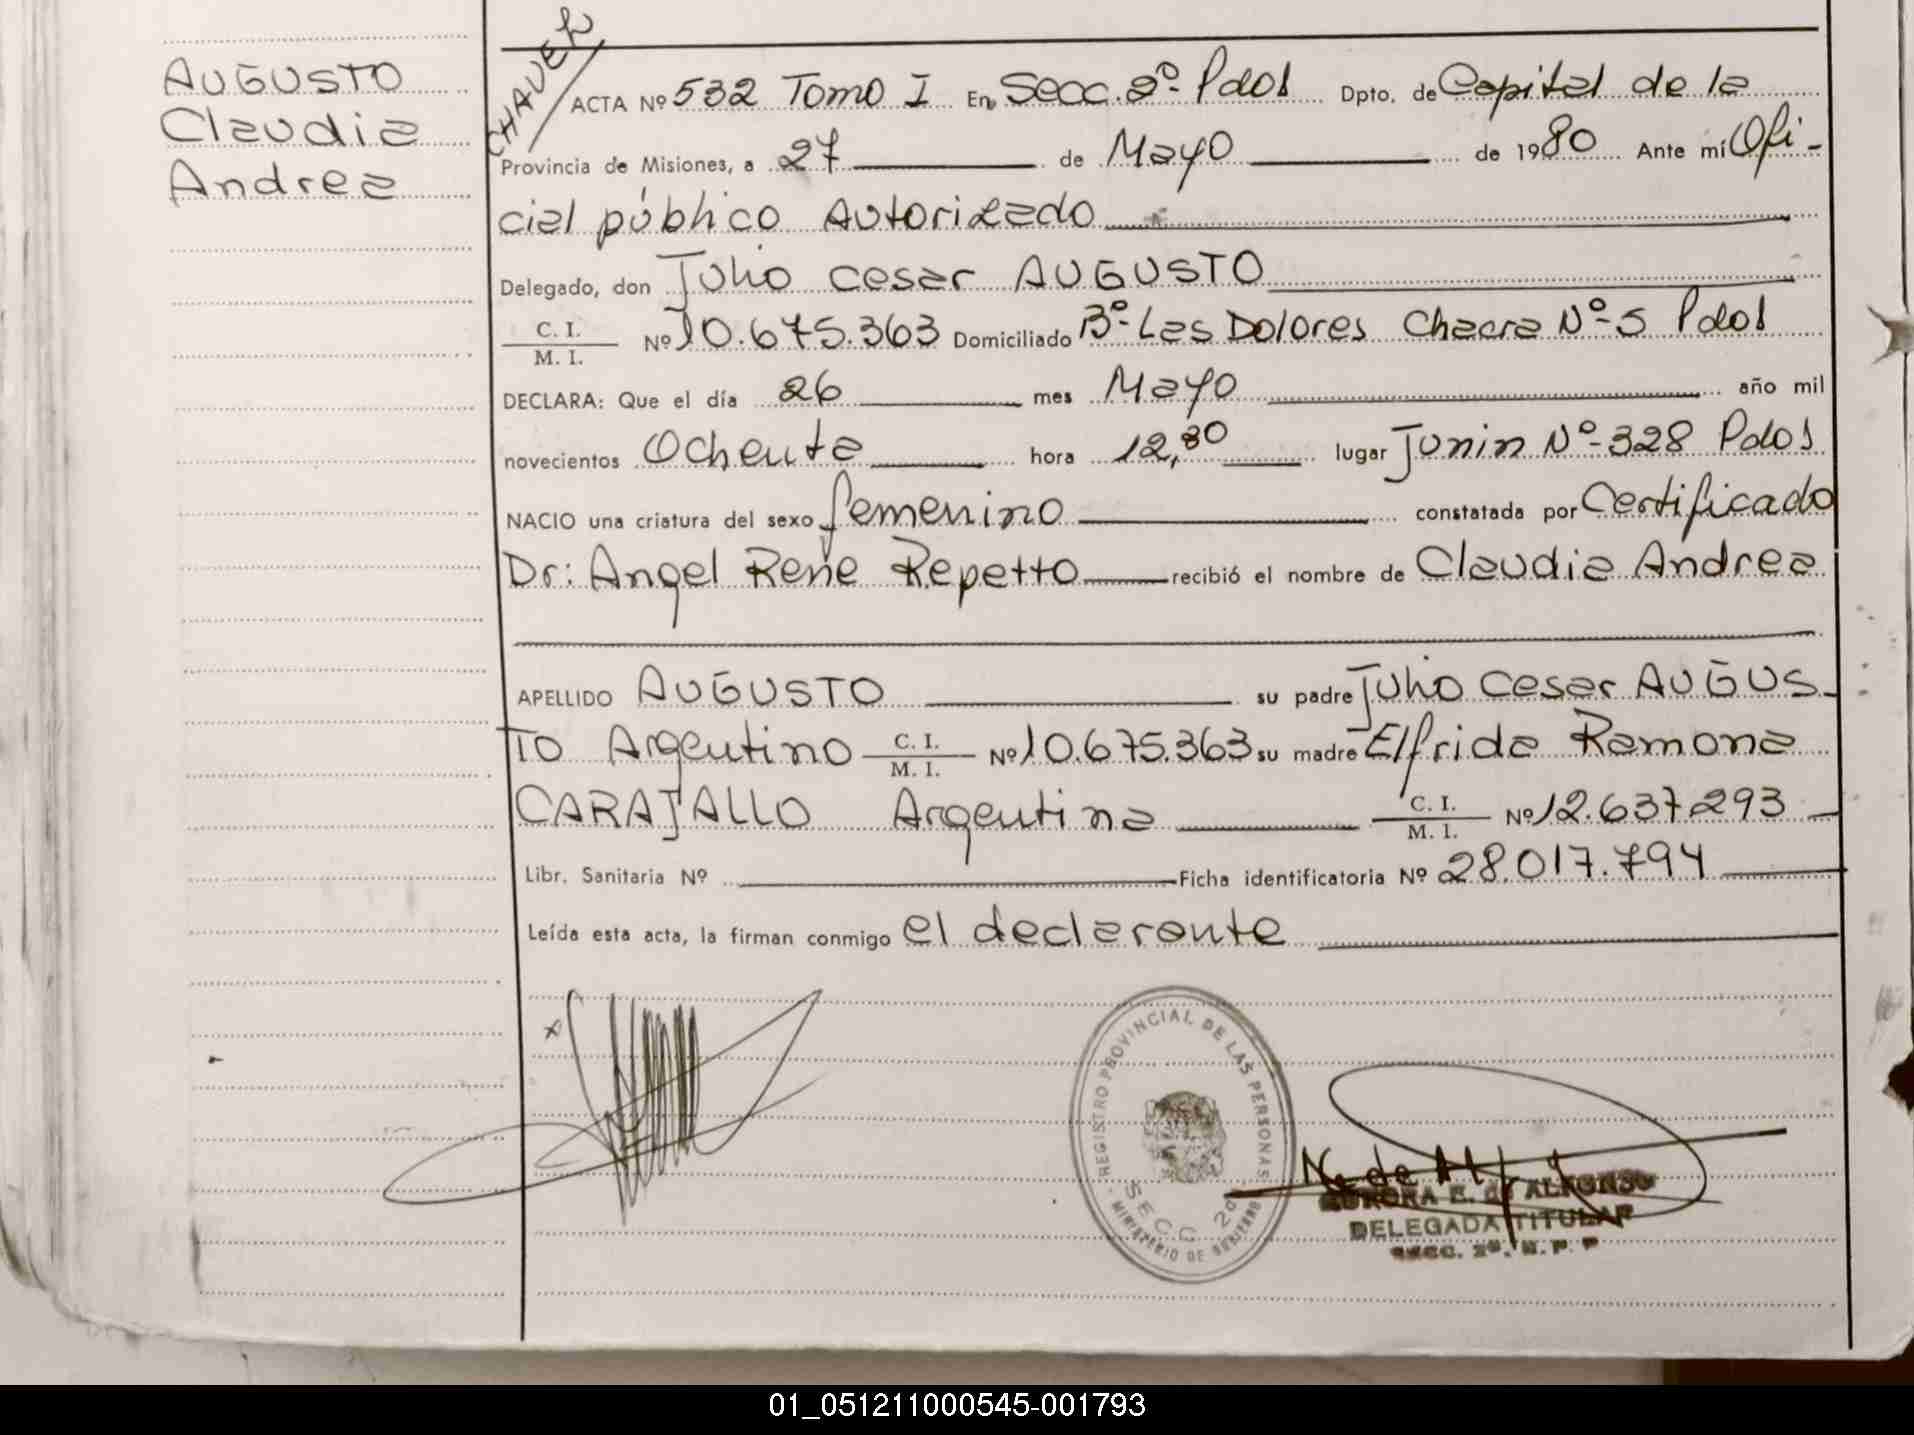 AUGUSTO
Claudia
Andrea
CHAVEZ
ACTA Nº 532 Tomo I En Secc. 2º- Pdos Dpto. de Capital de la
Provincia de Misiones, a 27 de Mayo de 1980 Ante mí Ofi-
cial público Autorizado
Delegado, don Julio Cesar AUGUSTO
C. I.
M. I. Nº 10.675.363 Domiciliado Bº- Las Dolores Chacra Nº- 5 Pdos
DECLARA: Que el día 26 mes Mayo año mil
novecientos Ochenta hora 12,30 lugar Junin Nº- 328 Pdos
NACIO una criatura del sexo femenino constatada por Certificado
Dr: Angel Rene Repetto recibió el nombre de Claudia Andrea
APELLIDO AUGUSTO su padre Julio Cesar AUGUS-
TO Argentino C. I. M. I. Nº 10.675.363 su madre Elfrida Ramona
CARAJALLO Argentina C. I. M. I. Nº 12.637.293
Libr. Sanitaria Nº Ficha identificatoria Nº 28.017.794
Leída esta acta, la firman conmigo el declarante
x
REGISTRO PROVINCIAL DE LAS PERSONAS
SECC 2º
MINISTERIO DE GOBIERNO
AURORA E. de ALFONSO
DELEGADA TITULAR
SECC. 2ª.
01_051211000545-001793